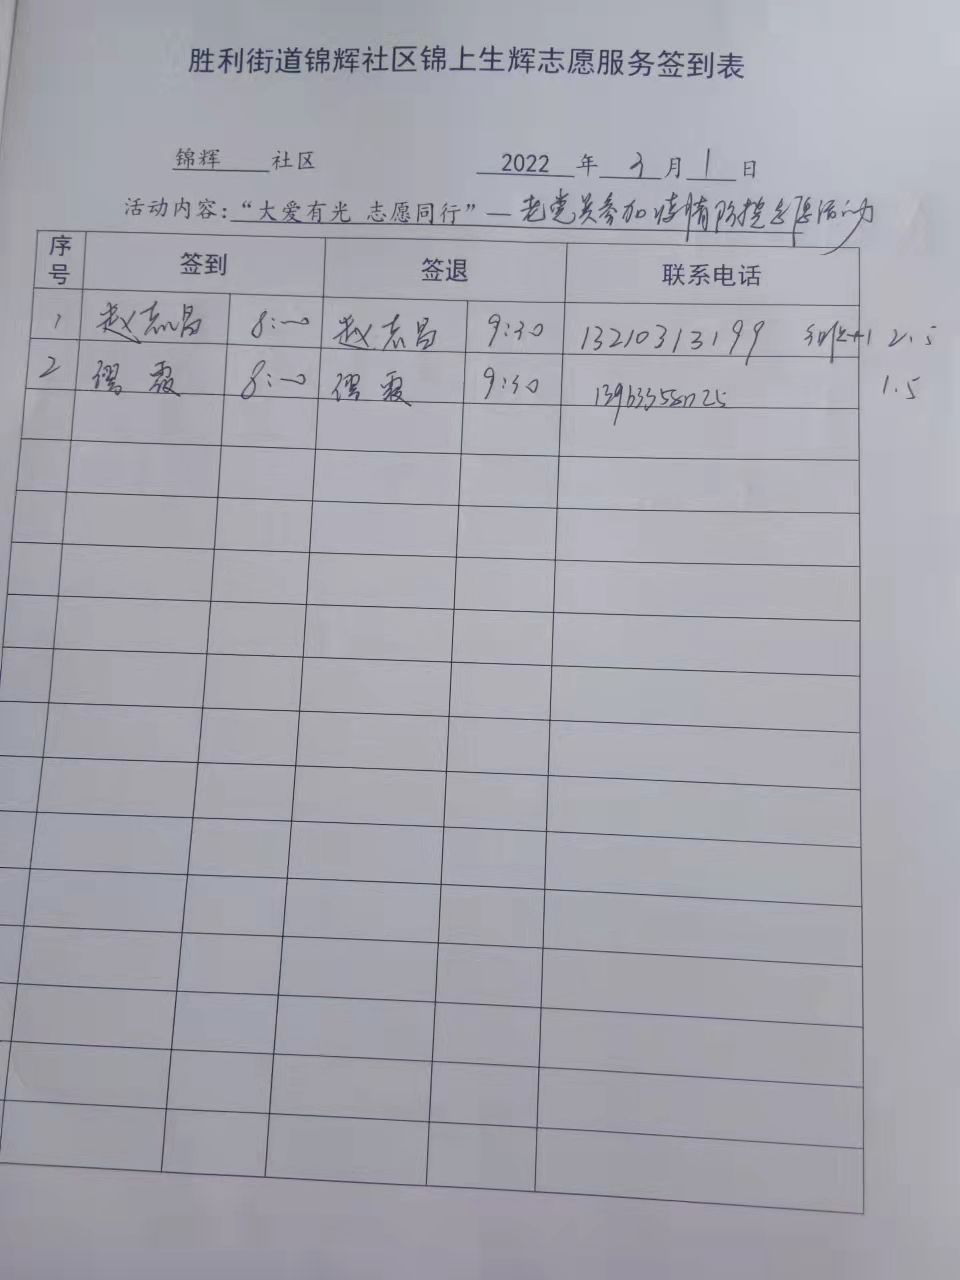 胜利街道锦辉社区锦上生辉志愿服务签到表
锦辉 社区 2022 年 3 月 1 日
活动内容：“大爱有光 志愿同行”—老党员参加疫情防控志愿活动
序号 签到 签退 联系电话
1 赵志昌 8:00 赵志昌 9:30 13210313199 +1 2.5
2 霞 8:00 霞 9:30 1.5